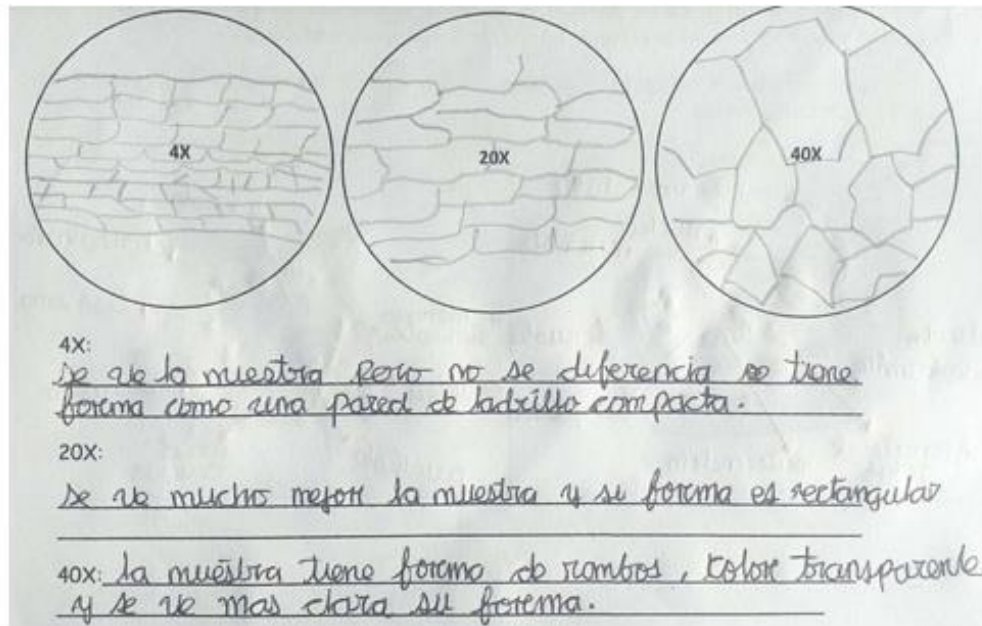 4X
20X
40X
4X:
se ve la muestra pero no se diferencia tiene
forma como una pared de ladrillo compacta.
20X:
se ve mucho mejor la muestra y si forma es rectangular
40X: la muestra tiene forma de rombos, color transparente
y se ve mas clara su forma.